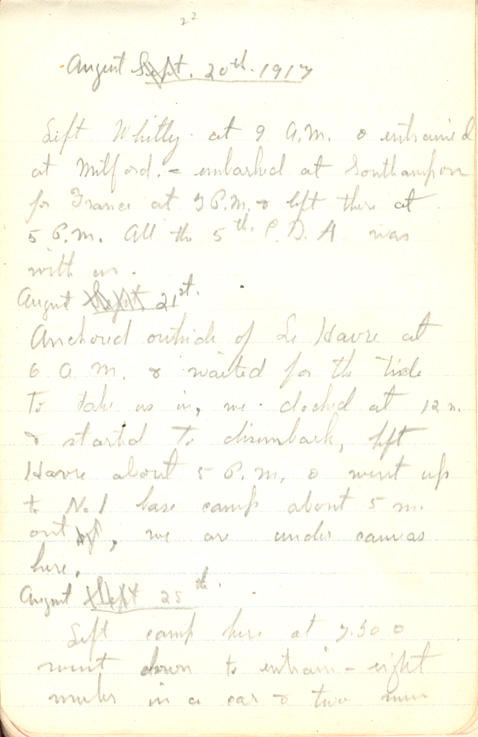 22
August Sept. 20th. 1917
Left Whitly at 9 A.M. & entrained
at Milford. - embarked at Southampton
for France at 3 P.M. & left there at
5 P.M. All the 5th. C. D. A was
with us.
August Sept. 21st.
Anchored outside of Le Havre at
6 a M. & waited for the tide
to take us in, we docked at 12 n.
& started to disembark, left
Havre about 5 P.M. & went up
to No. 1 base camp about 5 m.
out, we are under canvas
here.
August Sept 25th.
Left camp here at 7.30 &
went down to entrain - eight
mules in a car & two men